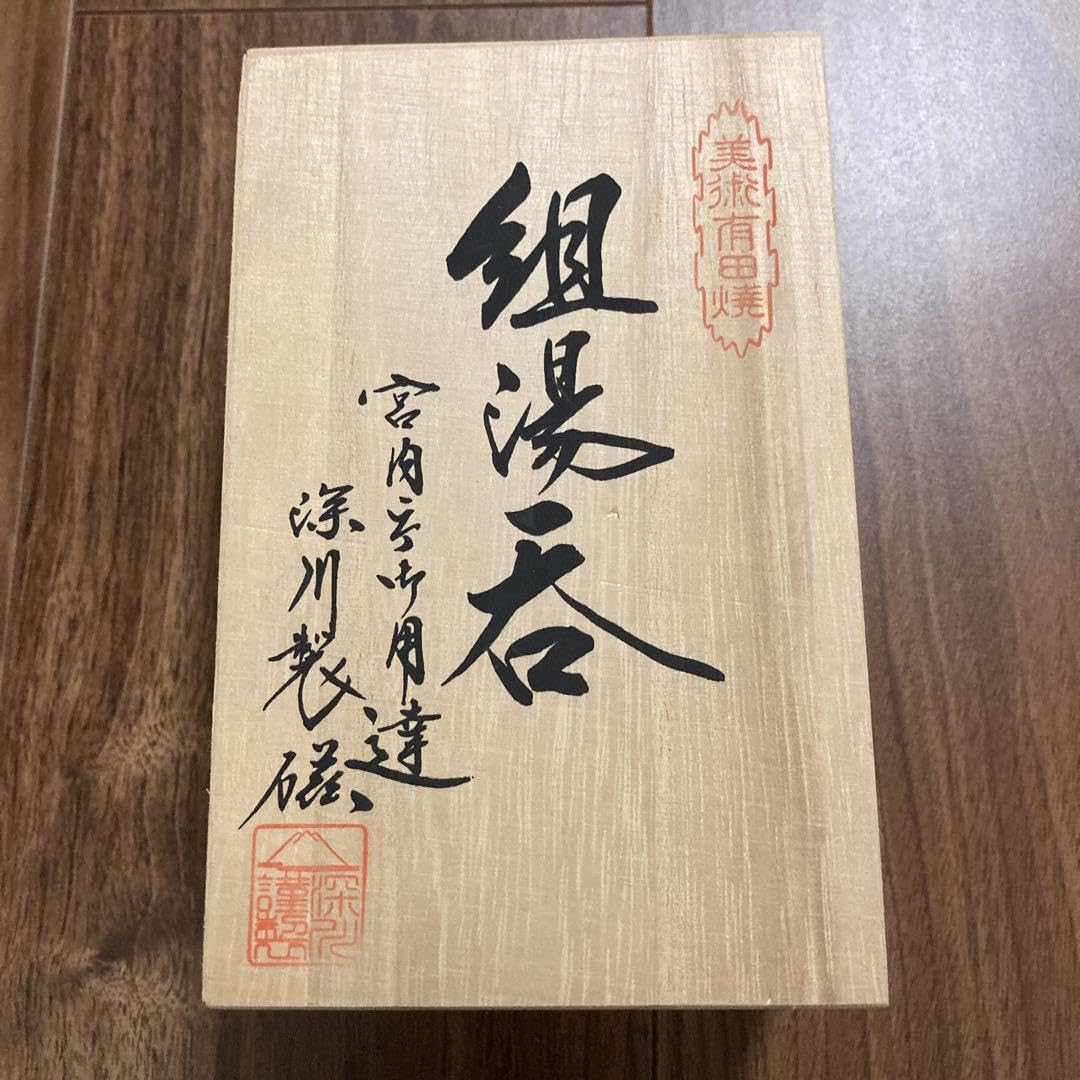 美術有田焼
組湯呑
宮内庁御用達
深川製磁
深川
謹製